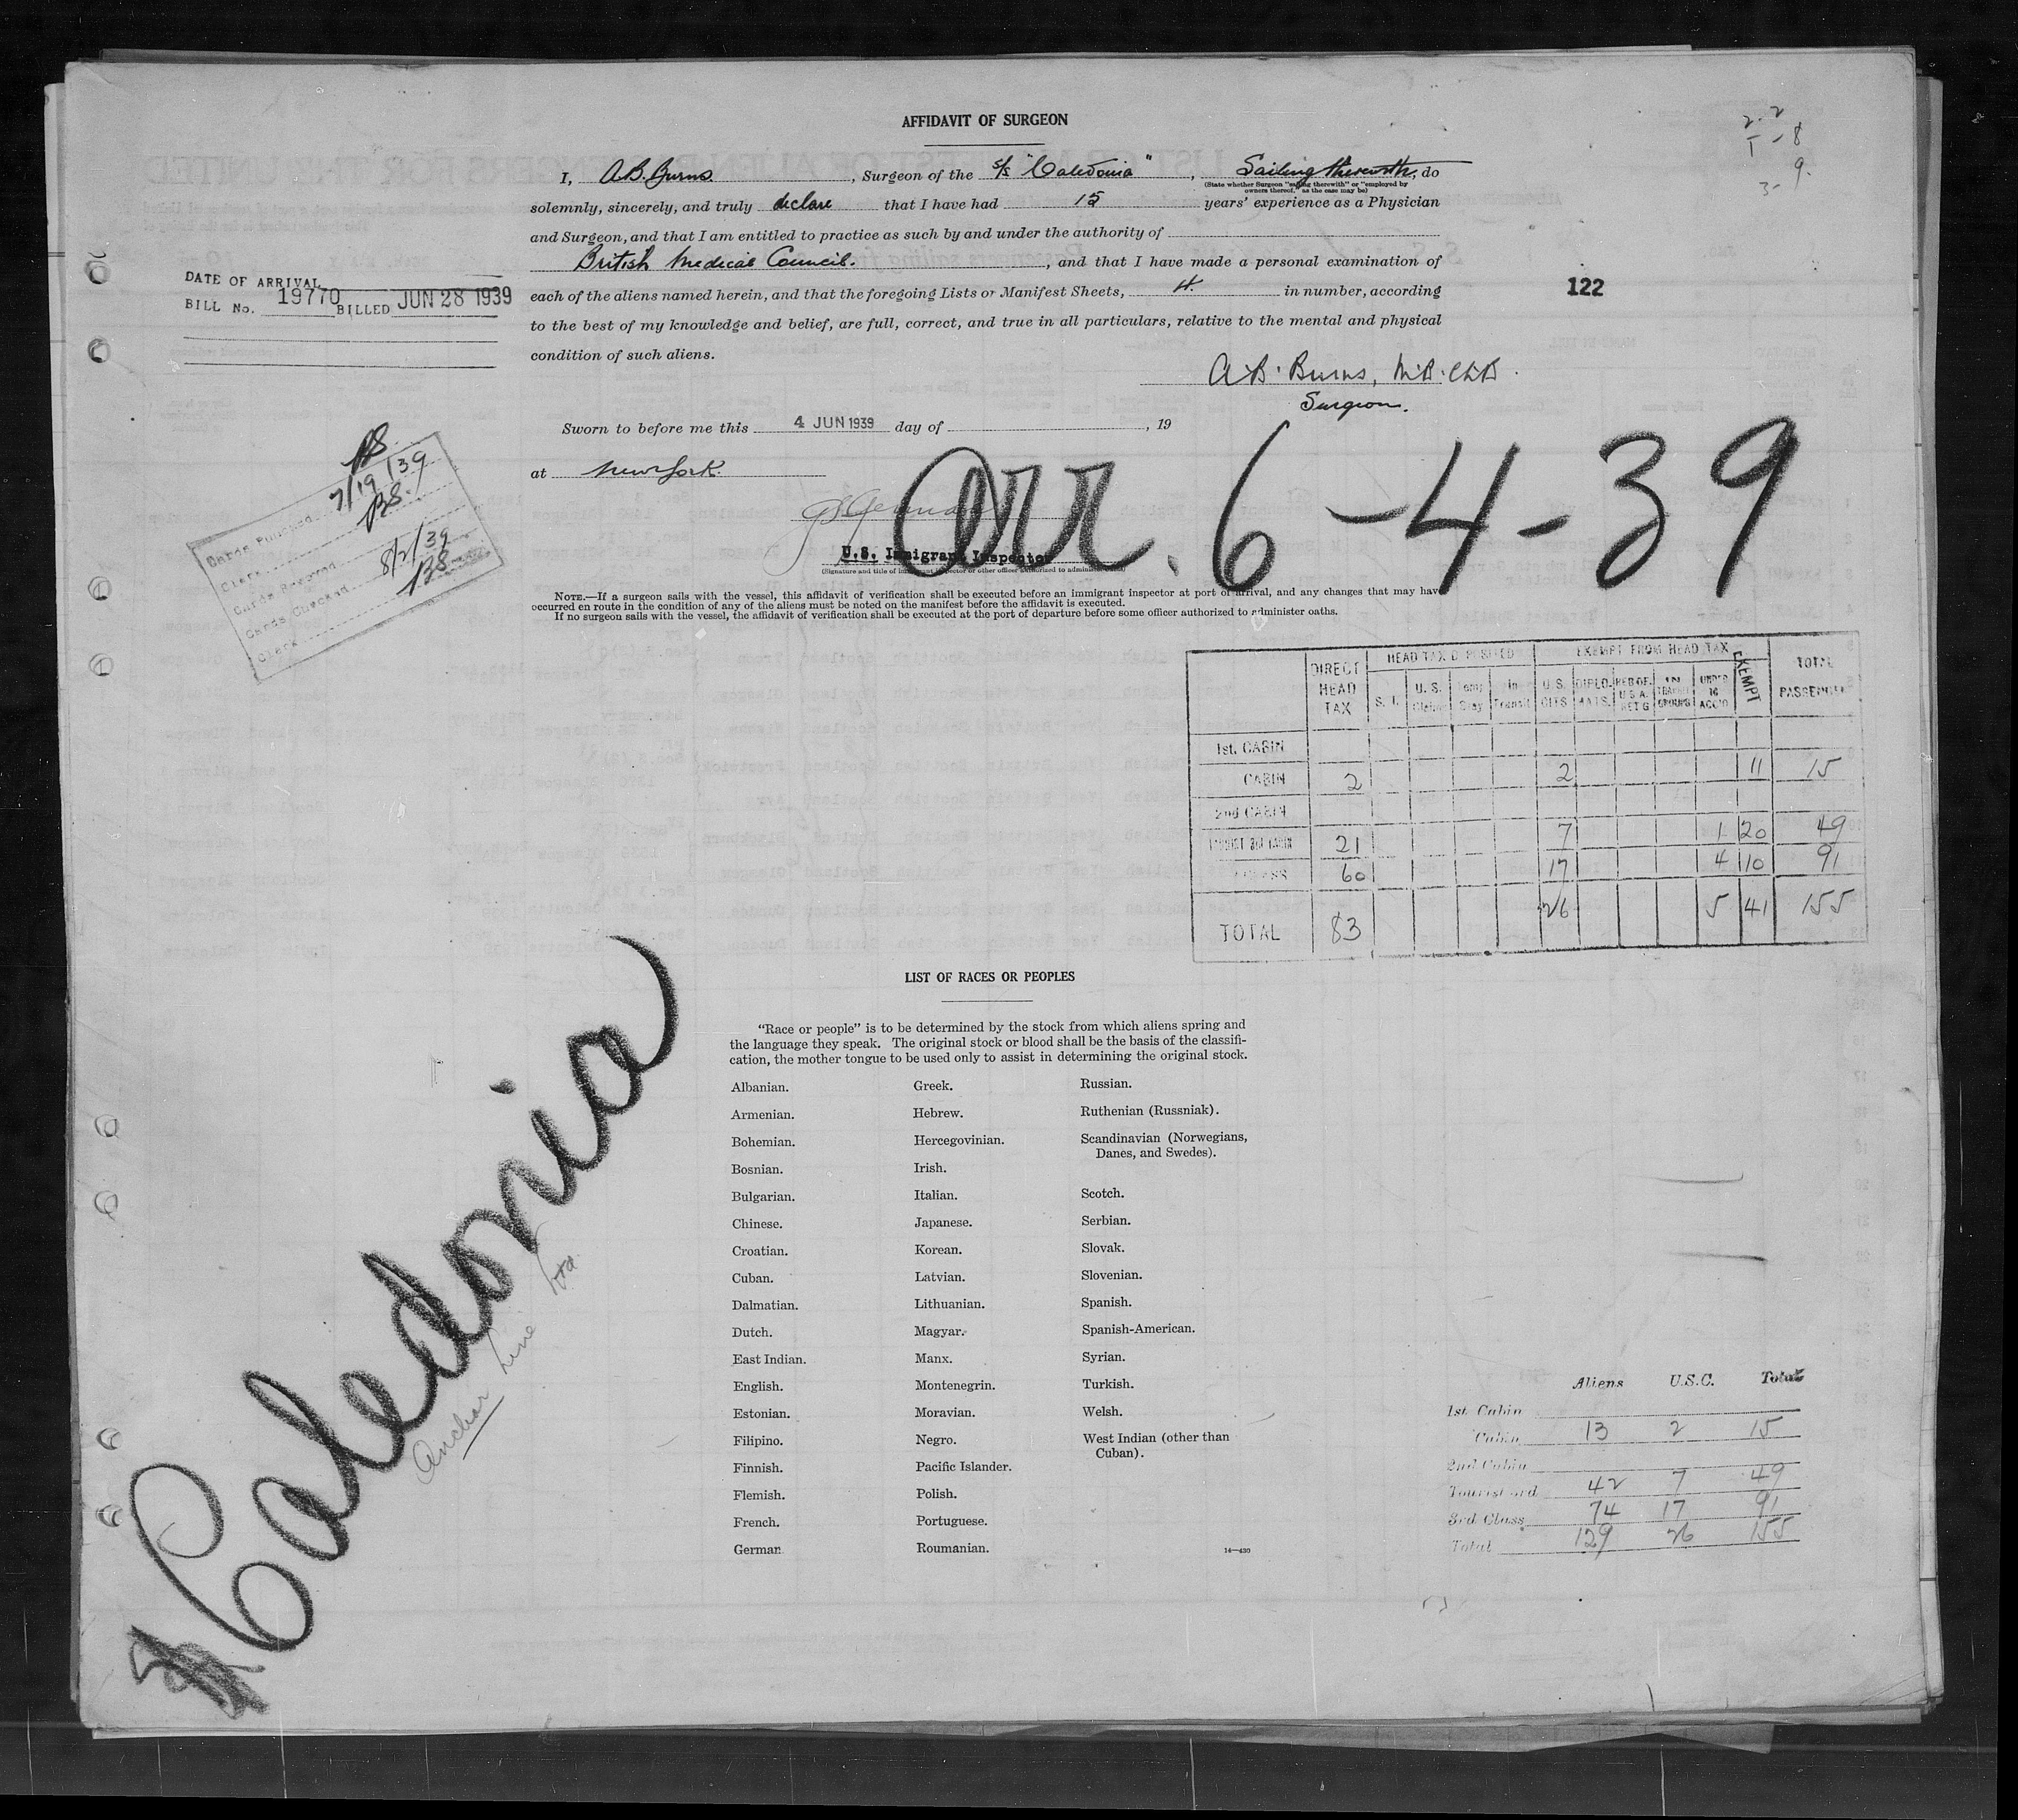 AFFIDAVIT OF SURGEON
I, A.B. Burns. , Surgeon of the s/s "Caledonia" , Sailing therewith, do
(State whether Surgeon "sailing therewith" or "employed by
owners thereof," as the case may be)
solemnly, sincerely, and truly declare that I have had 15 years' experience as a Physician
and Surgeon, and that I am entitled to practice as such by and under the authority of
British Medical Council. , and that I have made a personal examination of
each of the aliens named herein, and that the foregoing Lists or Manifest Sheets, 4. in number, according
to the best of my knowledge and belief, are full, correct, and true in all particulars, relative to the mental and physical
condition of such aliens.
A.B. Burns, M.B. Ch.B.
Surgeon.
Sworn to before me this 4 JUN 1939 day of , 19
at New York.
U.S. Immigrant Inspector
(Signature and title of immigrant inspector or other officer authorized to administer oaths)
NOTE.—If a surgeon sails with the vessel, this affidavit of verification shall be executed before an immigrant inspector at port of arrival, and any changes that may have
occurred en route in the condition of any of the aliens must be noted on the manifest before the affidavit is executed.
If no surgeon sails with the vessel, the affidavit of verification shall be executed at the port of departure before some officer authorized to administer oaths.
2 - 2
1 - 8
3 - 9.
122
DATE OF ARRIVAL
BILL No. 19770 BILLED JUN 28 1939
Cards Punched 7/19/39
Clerk BS.
Cards Removed
Cards Checked 8/2/39
Clerk BS
arr. 6-4-39
DIRECT HEAD TAX
HEAD TAX DEPOSITED
EXEMPT FROM HEAD TAX
EXEMPT
TOTAL PASSENGERS
S. I. U. S. Citizen Temp Stay In Transit U.S. CITS DIPLO. MATS. RES OF. U S A. RET'G IN TRANSIT GROUPS UNDER 16 ACC'D
1st. CABIN
CABIN 2 2 11 15
2nd CABIN
TOURIST 3rd CABIN 21 7 1 20 49
CLASS 60 17 4 10 91
TOTAL 83 26 5 41 155
LIST OF RACES OR PEOPLES
"Race or people" is to be determined by the stock from which aliens spring and
the language they speak. The original stock or blood shall be the basis of the classifi-
cation, the mother tongue to be used only to assist in determining the original stock.
Albanian.
Armenian.
Bohemian.
Bosnian.
Bulgarian.
Chinese.
Croatian.
Cuban.
Dalmatian.
Dutch.
East Indian.
English.
Estonian.
Filipino.
Finnish.
Flemish.
French.
German.
Greek.
Hebrew.
Hercegovinian.
Irish.
Italian.
Japanese.
Korean.
Latvian.
Lithuanian.
Magyar.
Manx.
Montenegrin.
Moravian.
Negro.
Pacific Islander.
Polish.
Portuguese.
Roumanian.
Russian.
Ruthenian (Russniak).
Scandinavian (Norwegians,
Danes, and Swedes).
Scotch.
Serbian.
Slovak.
Slovenian.
Spanish.
Spanish-American.
Syrian.
Turkish.
Welsh.
West Indian (other than
Cuban).
14—430
Caledonia
Anchor Line Ltd.
Aliens U.S.C. Total
1st. Cabin
Cabin 13 2 15
2nd Cabin
Tourist 3rd 42 7 49
3rd Class 74 17 91
Total 129 26 155